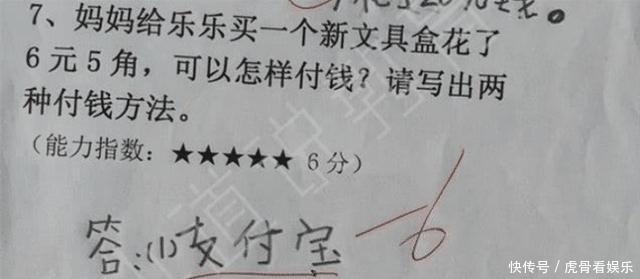 7、妈妈给乐乐买一个新文具盒花了
6元5角，可以怎样付钱？请写出两
种付钱方法。
（能力指数：★★★★★ 6分）
答:(1)支付宝 -6
快传号/虎骨看娱乐